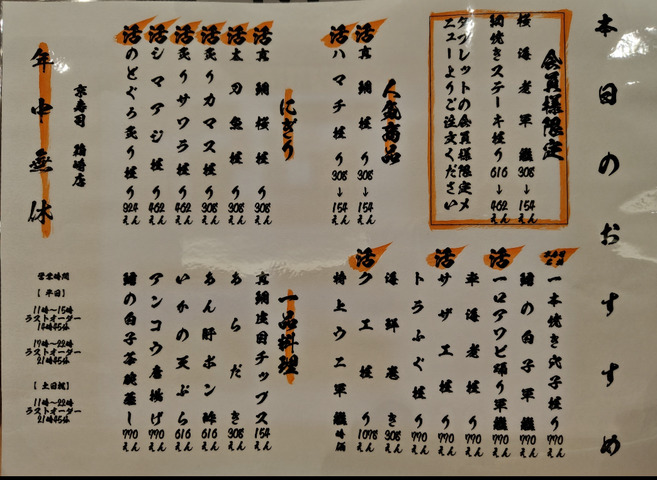 本日のおすすめ
会員様限定
桜海老軍艦 308→154えん
鯛焼きステーキ握り 616→462えん
タブレットの会員様限定メ
ニューよりご注文ください
人気商品
活 真鯛握り 308→154えん
活 ハマチ握り 308→154えん
にぎり
活 真鯛桜握り 308えん
活 太刀魚握り 308えん
活 炙りカマス握り 308えん
活 炙りサワラ握り 462えん
活 シマアジ握り 462えん
活 のどぐろ炙り握り 924えん
京寿司 箱崎店
年中無休
一本焼き穴子握り 770えん
鱈の白子軍艦 770えん
活 一口アワビ踊り軍艦 770えん
車海老握り 770えん
活 サザエ握り 770えん
トラふぐ握り 770えん
海鮮巻き 308えん
活 クエ握り 1078えん
特上ウニ軍艦 時価
一品料理
真鯛皮目チップス 154えん
あらだき 308えん
あん肝ポン酢 616えん
いかの天ぷら 616えん
アンコウ唐揚げ 770えん
鱈の白子茶碗蒸し 770えん
営業時間
【平日】
11時〜15時
ラストオーダー
14時45分
17時〜22時
ラストオーダー
21時45分
【土日祝】
11時〜22時
ラストオーダー
21時45分